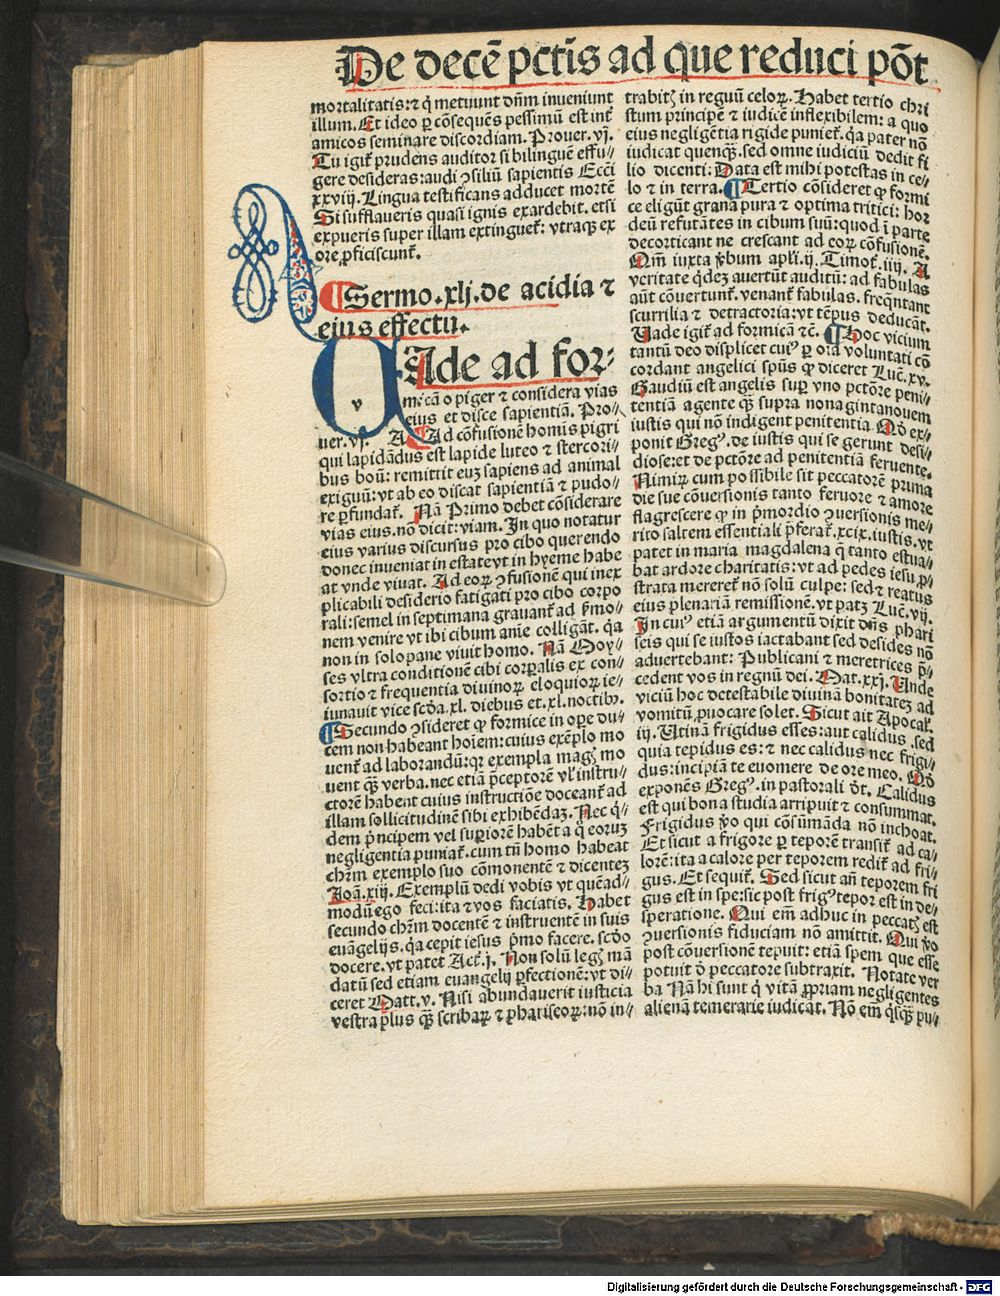 De decē pctīs ad que reduci pōt
mortalitatis: ⁊ q̄ metuunt dn̄m inueniunt
illum. Et ideo ꝑ cōsequēs pessimū est int̄
amicos seminare discordiam. Prouer. vj.
Tu igit̄ prudens auditor si bilinguē effu⸗
gere desideras: audi ꝯsiliū sapientis Ecc̄i
xxviij. Lingua testificans adducet mortē
Si sufflaueris quasi ignis exardebit. etsi
expueris super illam extinguet̄: vtraqꝫ ex
ore ꝓficiscunt̄.
¶ Sermo .xlj. de acidia ⁊
eius effectu.
VAde ad for⸗
micā o piger ⁊ considera vias
eius et disce sapientiā. Pro⸗
uer. vj. Ad cōfusionē homīs pigri
qui lapidādus est lapide luteo ⁊ stercori⸗
bus boū: remittit euꝫ sapiens ad animal
exiguū: vt ab eo discat sapientiā ⁊ pudo⸗
re ꝑfundat̄. Nā Primo debet cōsiderare
vias eius. nō dicit: viam. In quo notatur
eius varius discursus pro cibo querendo
donec inueniat in estate vt in hyeme habe
at vnde viuat. Ad eoꝝ ꝯfusionē qui inex
plicabili desiderio fatigati pro cibo corpo
rali: semel in septimana grauant̄ ad ꝑmo⸗
nem venire vt ibi cibum anīe colligāt. qa
non in solo pane viuit homo. Nā Moy⸗
ses vltra conditionē cibi corꝑalis ex con⸗
sortio ⁊ frequentia diuinoꝝ eloquioꝝ ie⸗
iunauit vice scd̄a .xl. diebus et .xl. noctibꝫ.
¶ Secundo ꝯsideret ꝙ formice in oꝑe du⸗
cem non habeant hoīem: cuius exēplo mo
uent̄ ad laborandū: qꝛ exempla magꝫ mo
uent qꝫ̄ verba. nec etiā p̄ceptorē vl̄ instru⸗
ctorē habent cuius instructiōe doceant̄ ad
illam sollicitudinē sibi exhibēdaꝫ. Nec q̄⸗
dem p̄ncipem vel suꝑiorē habēt a q̄ eoruꝫ
negligentia puniat̄. cum tn̄ homo habeat
chr̄m exemplo suo cōmonentē ⁊ dicenteꝫ
Joā. xiij. Exemplū dedi vobis vt quēad⸗
modū ego feci: ita ⁊ vos faciatis. Habet
secundo chr̄m docentē ⁊ instruentē in suis
euāgelijs. qa cepit iesus p̄mo facere. scd̄o
docere. vt patet Act̄. j. Non solū legꝫ mā
datū sed etiam euangelij ꝑfectionē: vt di⸗
ceret Matt. v. Nisi abundauerit iusticia
vestra plus qꝫ̄ scribaꝝ ⁊ phariseoꝝ: nō in⸗
trabitꝫ in regnū celoꝝ. Habet tertio chri
stum principē ⁊ iudicē inflexibilem: a quo
eius negligētia rigide puniet̄. qa pater nō
iudicat quenqꝫ. sed omne iudiciū dedit fi
lio dicenti: Data est mihi potestas in ce⸗
lo ⁊ in terra. ¶ Tertio cōsideret ꝙ formi
ce eligūt grana pura ⁊ optima tritici: hor
deū refutātes in cibum suū: quod ī parte
decorticant ne crescant ad eoꝝ cōfusionē.
Qm̄ iuxta v̄bum apl̄i. ij. Timot̄. iiij. A
veritate q̄deꝫ auertūt auditū: ad fabulas
aūt cōuertunt̄. venant̄ fabulas. freqn̄tant
scurrilia ⁊ detractoria: vt tēpus deducāt.
Vade igit̄ ad formicā ⁊c̄. ¶ Hoc vicium
tantū deo displicet cuiꝰ ꝑ ora voluntati cō
cordant angelici spūs ꝙ diceret Luc̄. xv.
Gaudiū est angelis suꝑ vno pctōre peni⸗
tentiā agente qꝫ̄ supra nonagintanouem
iustis qui nō indigent penitentia. Qd̄ ex⸗
ponit Gregꝰ. de iustis qui se gerunt desi⸗
diose: et de pctōre ad penitentiā feruente.
Nimiꝝ cum possibile sit peccatorē prima
die sue cōuersionis tanto feruore ⁊ amore
flagrescere ꝙ in p̄mordio ꝯuersionis me⸗
rito saltem essentiali p̄ferat̄. xcix. iustis. vt
patet in maria magdalena q̄ tanto estua⸗
bat ardore charitatis: vt ad pedes iesu ꝓ⸗
strata mereret̄ nō solū culpe: sed ⁊ reatus
eius plenariā remissionē. vt patꝫ Luc̄. vij.
In cuiꝰ etiā argumentū dixit dn̄s phari
seis qui se iustos iactabant sed desides nō
aduertebant: Publicani ⁊ meretrices p̄⸗
cedent vos in regnū dei. Mat. xxj. Unde
viciū hoc detestabile diuinā bonitateꝫ ad
vomitū ꝓuocare solet. Sicut ait Apocal̄.
iij. Utinā frigidus esses: aut calidus. sed
quia tepidus es: ⁊ nec calidus nec frigi⸗
dus: incipiā te euomere de ore meo. Qd̄
exponēs Gregꝰ. in pastorali dt̄. Calidus
est qui bona studia arripuit ⁊ consummat.
Frigidus v̄o qui cōsūmāda nō inchoat.
Et sicut a frigore ꝑ teporē transit̄ ad ca⸗
lorē: ita a calore per teporem redit̄ ad fri⸗
gus. Et sequit̄. Sed sicut añ teporem fri
gus est in spe: sic post frigꝰ tepor est in de⸗
speratione. Qui em̄ adhuc in peccatꝫ est
ꝯuersionis fiduciam nō amittit. Qui v̄o
post cōuersionē tepuit: etiā spem que esse
potuit d̄ peccatore subtraxit. Notate ver
ba Nā hi sunt q̄ vitā ꝓpriam negligentes
alienā temerarie iudicāt. Nō em̄ qͥsqꝫ̄ pu⸗
Digitalisierung gefördert durch die Deutsche Forschungsgemeinschaft - DFG